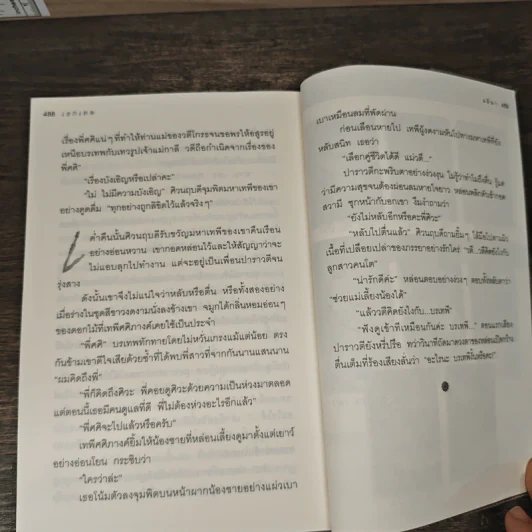 488
เรื่องพี่ศศิแน่ๆ ที่ทำให้ท่านแม่ของวดีโกรธจนขอพรให้อสูรอยู่
เหนือบรเทพกับเทวรูปเจ้าแม่กาลี วดีถือกำเนิดจากเรื่องของ
พี่ศศิ"
"เรื่องบังเอิญหรือเปล่าคะ"
"ไม่ ไม่มีความบังเอิญ" ศิวนฤบดีจุมพิตมหาเทพีของเขา
อย่างดูดดื่ม "ทุกอย่างถูกลิขิตไว้แล้วจริงๆ"
ค่ำคืนนั้นศิวนฤบดีรับขวัญมหาเทพีของเขาคืนเรือน
อย่างอ่อนหวาน เขากอดหล่อนไว้และให้สัญญาว่าจะ
ไม่แอบลุกไปทำงาน แต่จะอยู่เป็นเพื่อนปาราวตีจน
รุ่งสาง
ดังนั้นเขาจึงไม่แน่ใจว่าหลับหรือตื่น หรือทั้งสองอย่าง
เมื่อร่างในชุดสีขาวงดงามนั่งลงข้างเขา จมูกได้กลิ่นหอมอ่อนๆ
ของดอกไม้ที่เทพีศศิภางค์เคยใช้เป็นประจำ
"พี่ศศิ" บรเทพทักทายโดยไม่หวั่นเกรงแม้แต่น้อย ตรง
กันข้ามเขาดีใจเสียด้วยซ้ำที่ได้พบพี่สาวที่จากกันนานแสนนาน
"ผมคิดถึงพี่"
"พี่ก็คิดถึงศิวะ พี่คอยดูศิวะด้วยความเป็นห่วงมาตลอด
แต่ตอนนี้เธอมีคนดูแลที่ดี พี่ไม่ต้องห่วงอะไรอีกแล้ว"
"พี่ศศิจะไปแล้วหรือครับ"
เทพีศศิภางค์ยิ้มให้น้องชายที่หล่อนเลี้ยงดูมาตั้งแต่เยาว์
อย่างอ่อนโยน กระซิบว่า
"ใครว่าล่ะ"
เธอโน้มตัวลงจุมพิตบนหน้าผากน้องชายอย่างแผ่วเบา
เบาเหมือนลมที่พัดผ่าน
ก่อนเลือนหายไป เทพีผู้งดงามหันไปทางมหาเทพีที่ยัง
หลับสนิท เธอว่า
"เลือกคู่ชีวิตได้ดี แม่วดี..."
ปาราวตีกะพริบตาอย่างง่วงงุน ไม่รู้ว่าทำไมถึงตื่น รู้แต่
ว่ามีความสุขจนต้องผ่อนลมหายใจยาว หล่อนพลิกตัวเข้ากอด
สวามี ซุกหน้ากับอกเขา งึมงำถามว่า
"ยังไม่หลับอีกหรือคะพี่ศิวะ"
"หลับไปตื่นแล้ว" ศิวนฤบดี
เนื้อที่เปลือยเปล่าของภรรยาอย่างรักใคร่
ลูกสาวคนโต"
"น่ารักดีค่ะ" หล่อนตอบอย่างง่วงๆ
"ช่วยแม่เลี้ยงน้องได้"
"แล้ววดีคิดยังไงกับ...บรเทพี"
"ฟังดูเข้าทีเหมือนกันค่ะ บรเทพี..."
ปาราวตียังหรี่ปรือ
ตื่นเต็มที่ร้องเสียงลั่นว่า